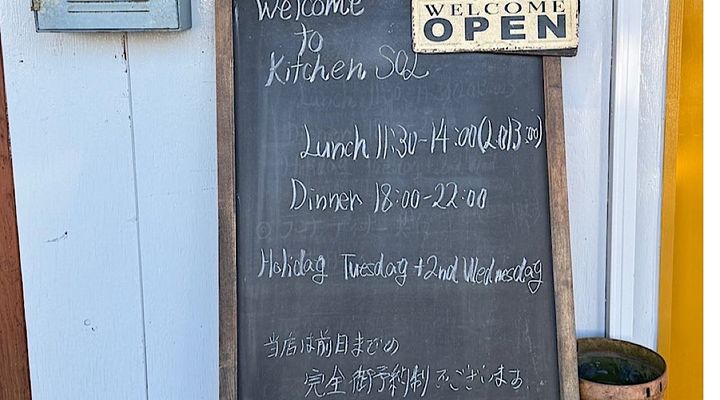 WELCOME
OPEN
Welcome
to
Kitchen SOL
Lunch 11:30-14:00(L.O13:00)
Dinner 18:00-22:00
Holiday Tuesday + 2nd Wednesday
当店は前日までの
完全御予約制でございます